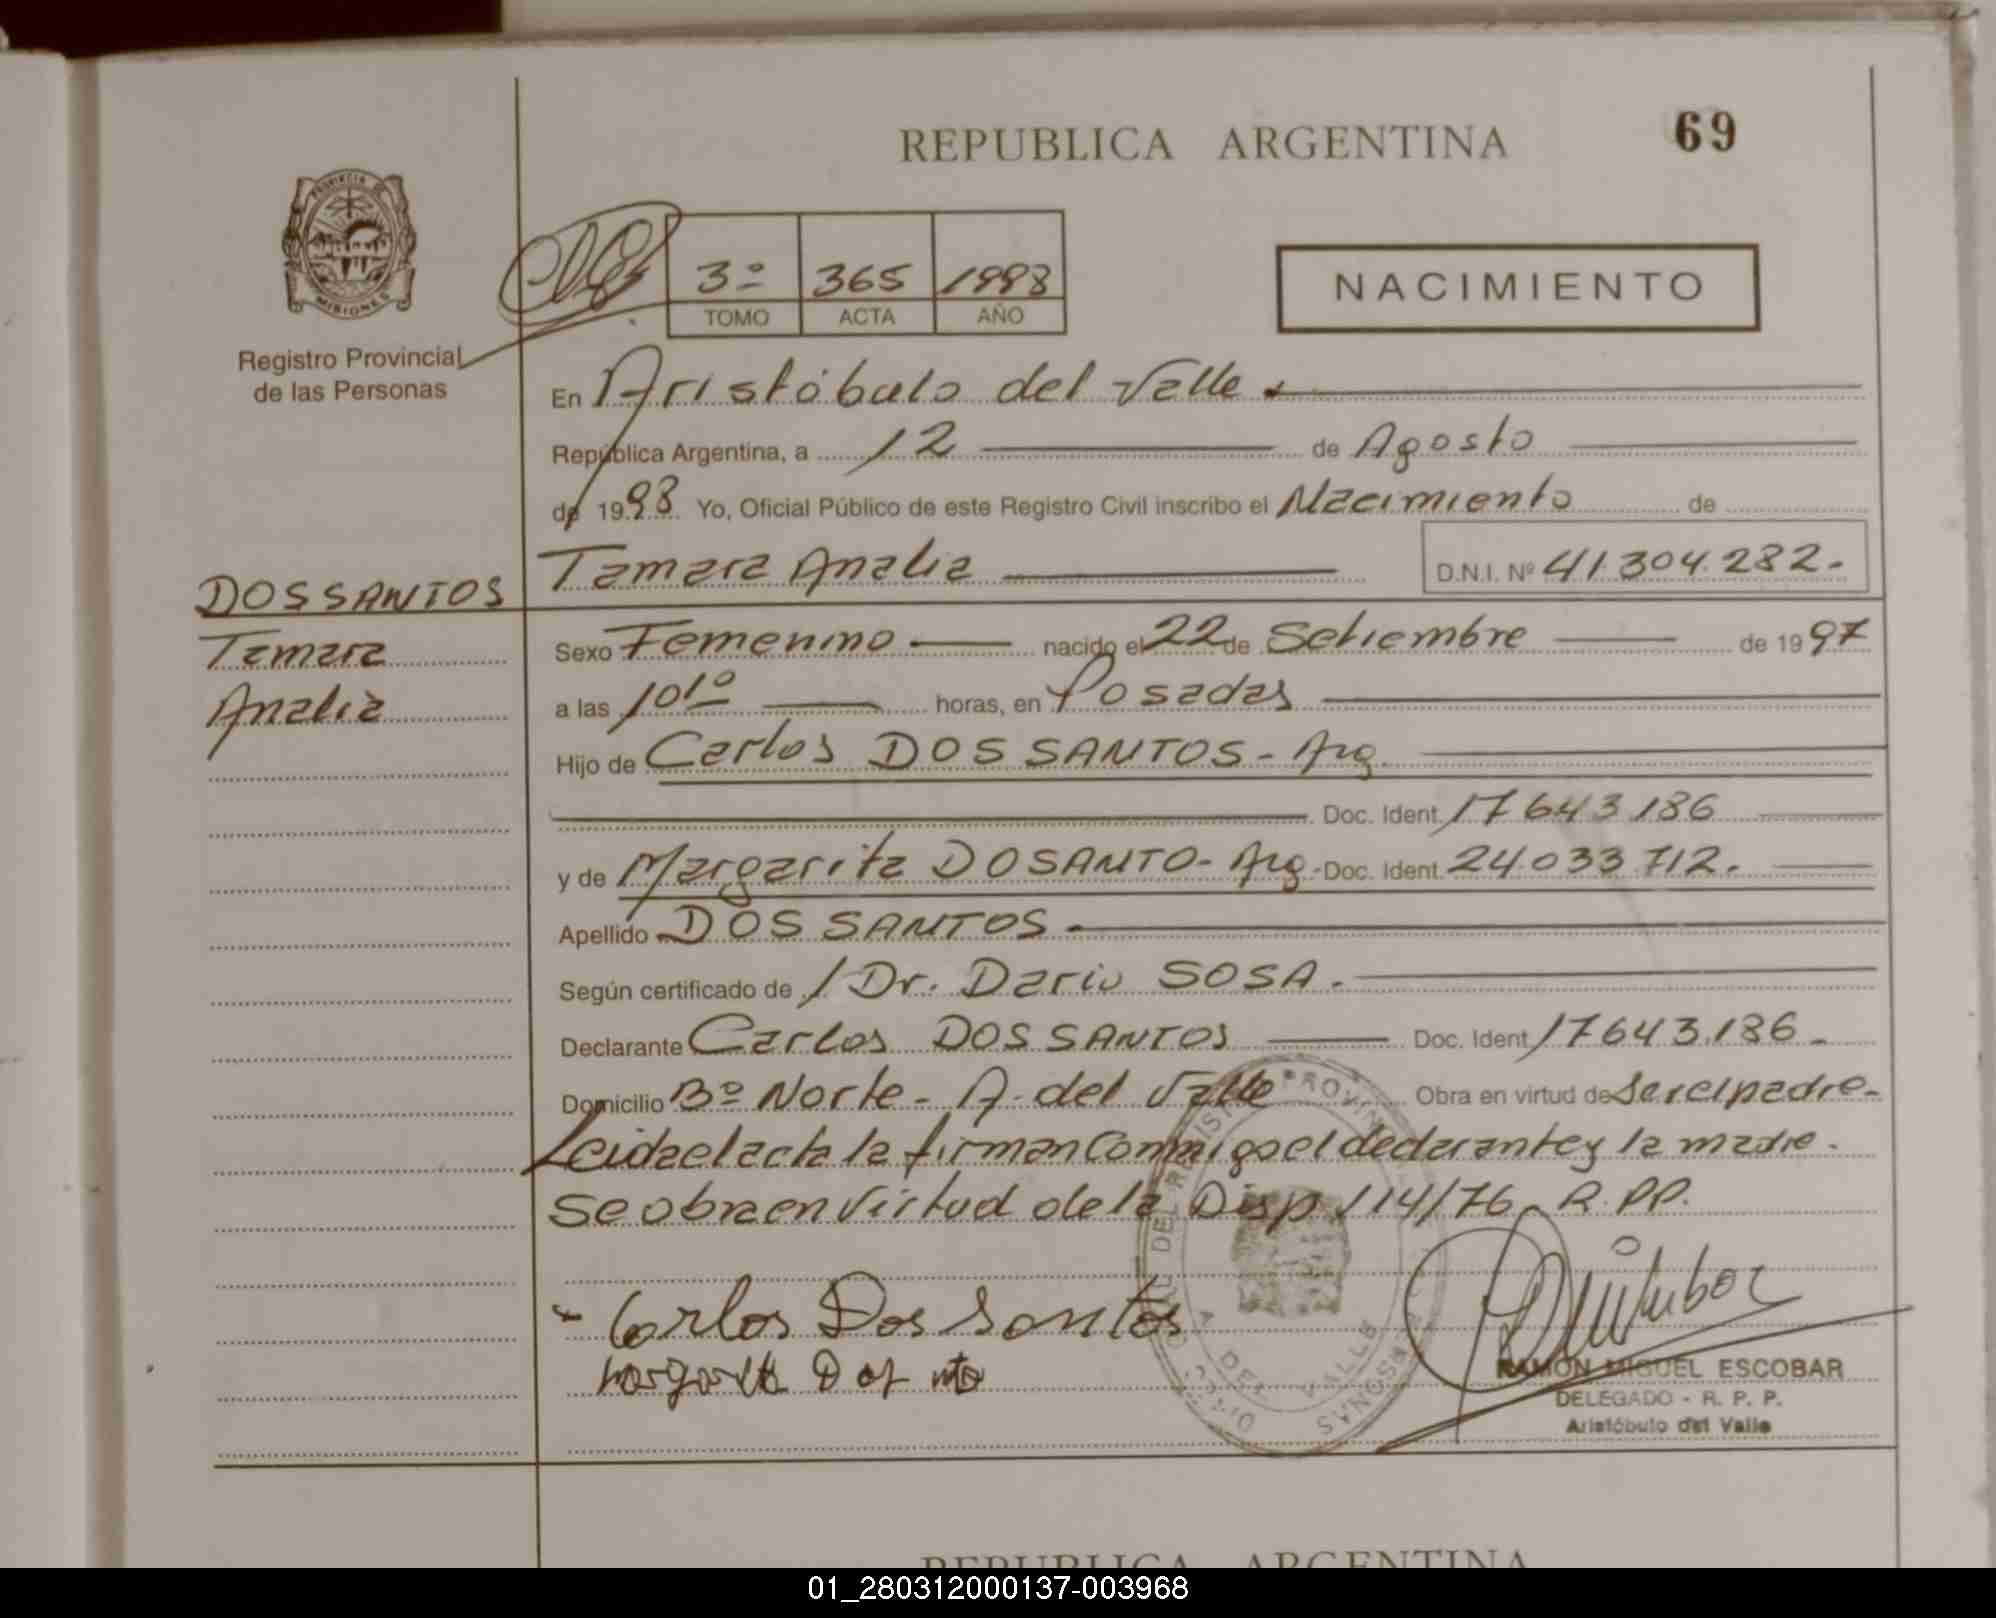 REPUBLICA ARGENTINA
69
PROVINCIA DE
MISIONES
Registro Provincial
de las Personas
3º 365 1998
TOMO ACTA AÑO
NACIMIENTO
En Aristóbulo del Valle
República Argentina, a 12 de Agosto
de 1998 Yo, Oficial Público de este Registro Civil inscribo el Nacimiento de
Tamara Analia D.N.I. Nº 41.304.282.-
DOS SANTOS
Tamara
Analia
Sexo Femenino nacido el 22 de Setiembre de 1997
a las 10¹º horas, en Posadas
Hijo de Carlos DOS SANTOS - Arg.
Doc. Ident. 17.643.186
y de Margarita DOSANTO - Arg.- Doc. Ident. 24.033.712.-
Apellido DOS SANTOS.
Según certificado de / Dr. Dario SOSA.
Declarante Carlos DOS SANTOS Doc. Ident. 17.643.186 -
Domicilio Bº Norte - A. del Valle Obra en virtud de ser el padre -
Leida el acta la firman Conmigo el declarante y la madre.
Se obra en Virtud de la Disp. 114/76 R.PP.
- Carlos Dos Santos
RAMON MIGUEL ESCOBAR
DELEGADO - R. P. P.
Aristóbulo del Valle
REPUBLICA ARGENTINA
01_280312000137-003968